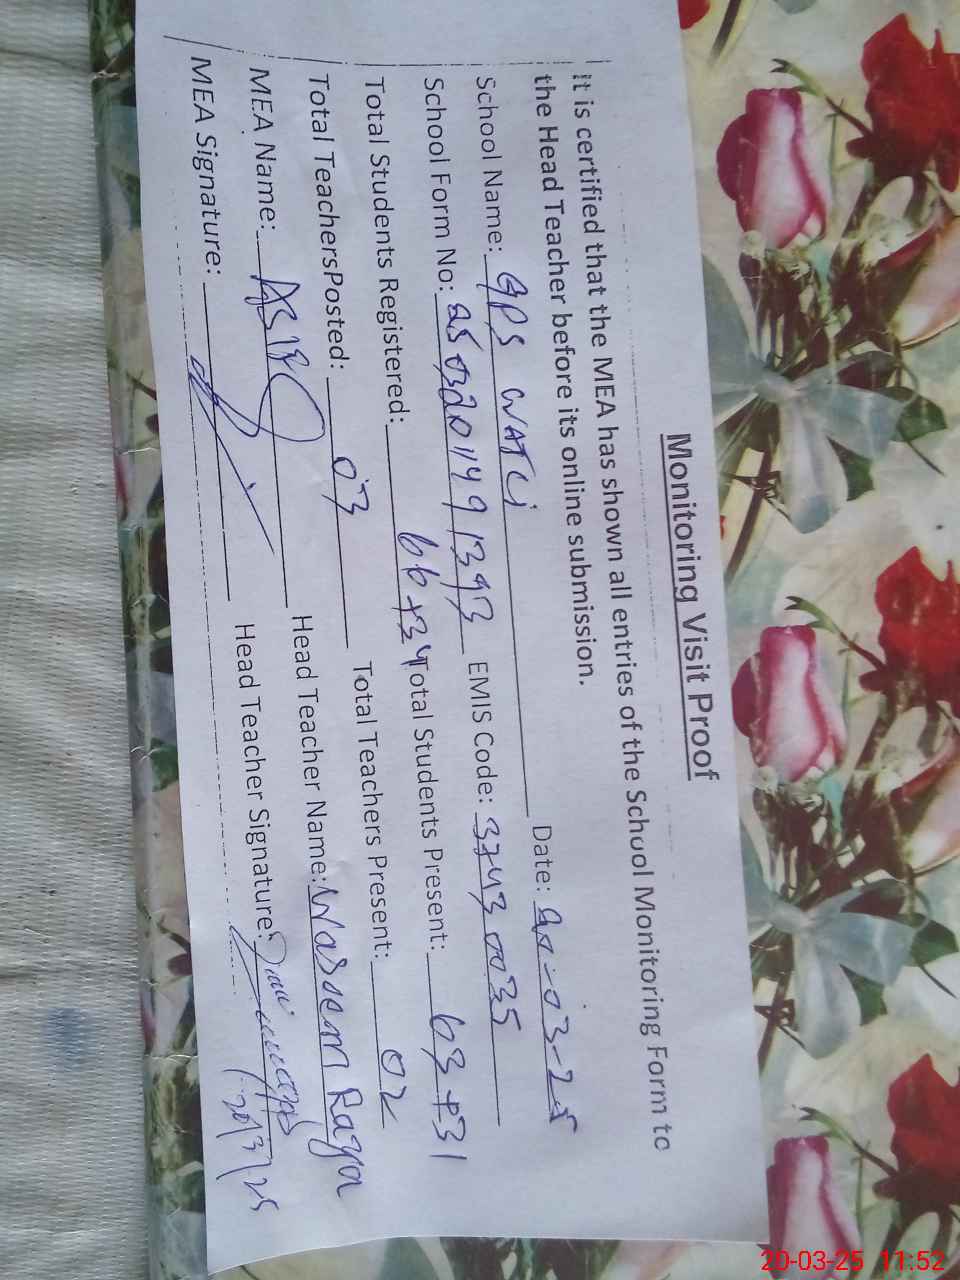 Monitoring Visit Proof
it is certified that the MEA has shown all entries of the School Monitoring Form to
the Head Teacher before its online submission.
School Name: GPS WATLi Date: 20-03-25
School Form No: 2503201491393 EMIS Code: 37430035
Total Students Registered: 66+34 Total Students Present: 63+31
Total TeachersPosted: 03 Total Teachers Present: 02
MEA Name: Head Teacher Name: Waseem Raza
MEA Signature: Head Teacher Signature:
20/3/25
20-03-25 11:52